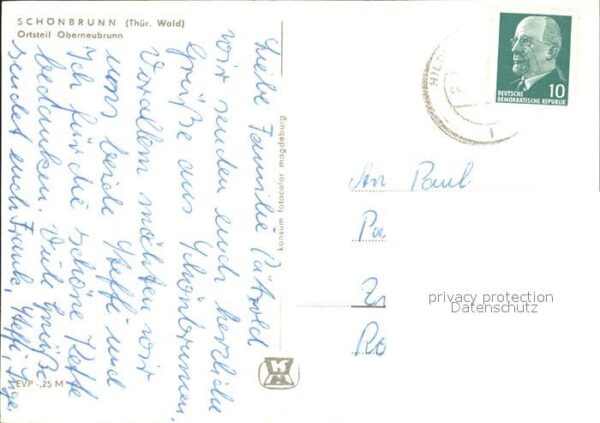 SCHÖNBRUNN (Thür. Wald)
Ortsteil Oberneubrunn
Liebe Familie
wir senden euch herzliche
Grüße aus Schönbrunn,
Vorallem möchten wir
uns beide Steffi und
Ich für die schöne Kette
bedanken. Viele Grüße
sendet euch Frank, Steffi, Inge
EVP -,25 M
konsum fotocolor magdeburg
DEUTSCHE
DEMOKRATISCHE REPUBLIK
10
HILD
An Paul
Pa
Ro
privacy protection
Datenschutz